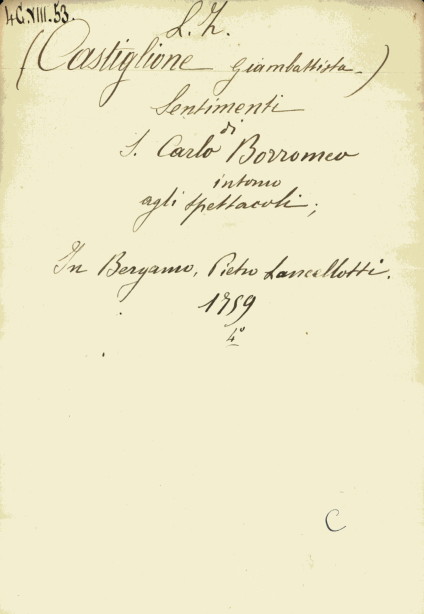 4C.XIII.53.
L.Z.
(Castiglione Giambattista.)
Sentimenti
di
S. Carlo Borromeo
intorno
agli spettacoli;
In Bergamo, Pietro Lancellotti.
1759
4°
C